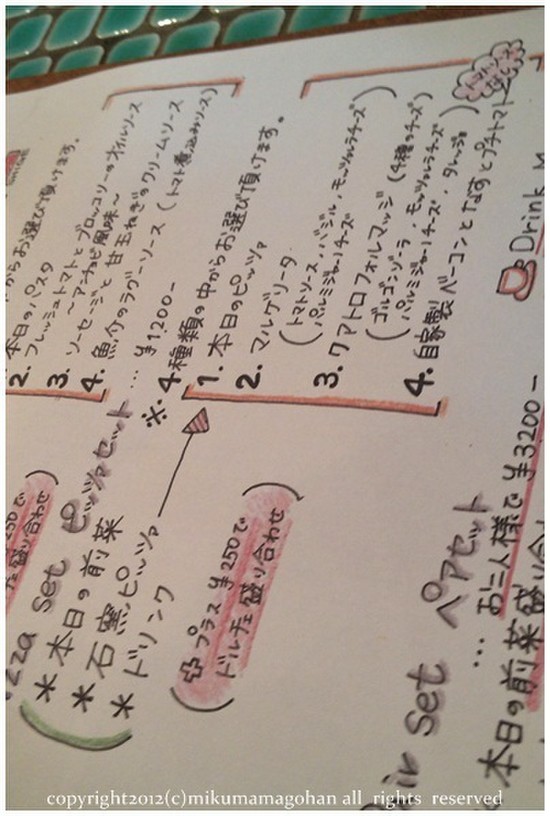 からお選び頂けます。
本日のパスタ
2. フレッシュトマトとブロッコリーのオイルソース
～アンチョビ風味～
3. ソーセージと甘玉ねぎのクリームソース
4. 魚介のラグーソース (トマト煮込みソース)
zza Set ピッツァセット … ¥1,200-
* 本日の前菜
* 石窯ピッツァ
* ドリンク
※ 4種類の中からお選び頂けます。
1. 本日のピッツァ
2. マルゲリータ
(トマトソース・バジル・モッツァレラチーズ
パルミジャーノチーズ)
3. クアトロフォルマッジ (4種のチーズ)
(ゴルゴンゾーラ・モッツァレラチーズ
パルミジャーノチーズ・タレッジョ)
4. 自家製ベーコンとなすとプチトマト
プラス ¥250で
ドルチェ盛り合わせ
¥250で
チェ盛り合わせ
Drink
air Set ペアセット
… お二人様で ¥3200-
本日の前菜盛り合
copyright2012(c)mikumamagohan all rights reserved